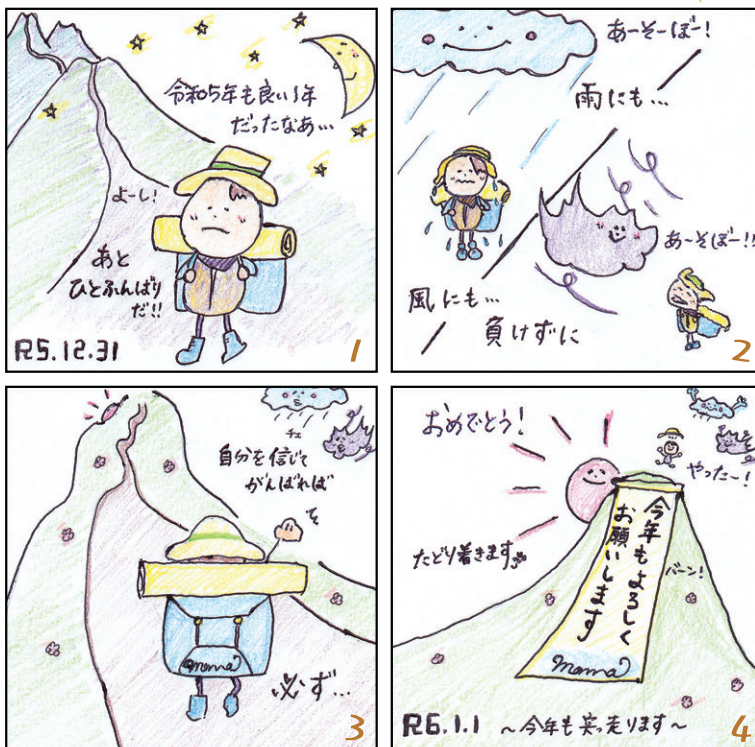 令和5年も良い1年
だったなあ…
よーし!
あと
ひとふんばり
だ!!
R5.12.31
1
あーそーぼー!
雨にも…
あ〜そぼー!!
風にも…
負けずに
2
チェ
自分を信じて
がんばれば
そ
moma
必ず…
3
おめでとう!
やった〜!
今年もよろしく
お願いします
たどり着きます
バーン!
moma
R6.1.1 〜今年も突っ走ります〜
4